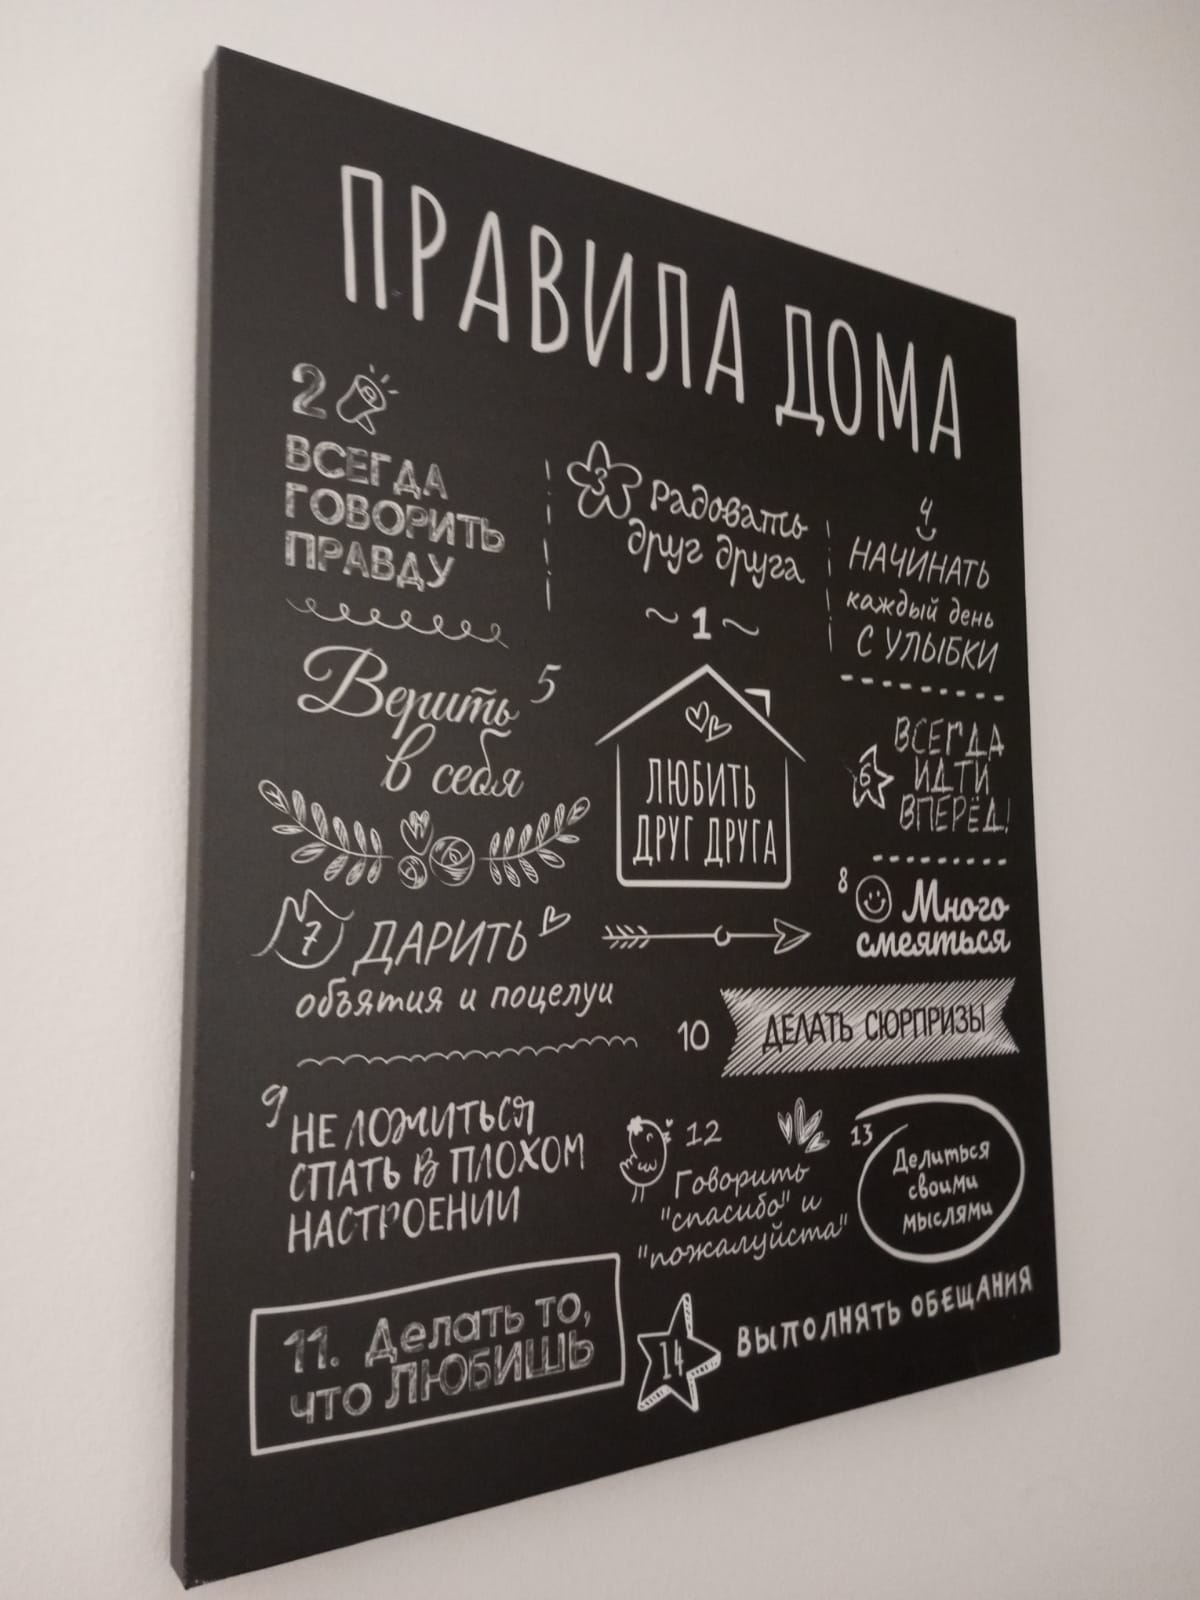 ПРАВИЛА ДОМА
2
ВСЕГДА
ГОВОРИТЬ
ПРАВДУ
3
Радовать
друг друга
4
НАЧИНАТЬ
каждый день
С УЛЫБКИ
~1~
ЛЮБИТЬ
ДРУГ ДРУГА
Верить 5
в себя
6
ВСЕГДА
ИДТИ
ВПЕРЁД!
7 ДАРИТЬ
объятия и поцелуи
8 Много
смеяться
10 ДЕЛАТЬ СЮРПРИЗЫ
9
НЕ ЛОЖИТЬСЯ
СПАТЬ В ПЛОХОМ
НАСТРОЕНИИ
12
Говорить
"спасибо" и
"пожалуйста"
13
Делиться
своими
мыслями
11. Делать то,
что ЛЮБИШЬ
14 ВЫПОЛНЯТЬ ОБЕЩАНИЯ